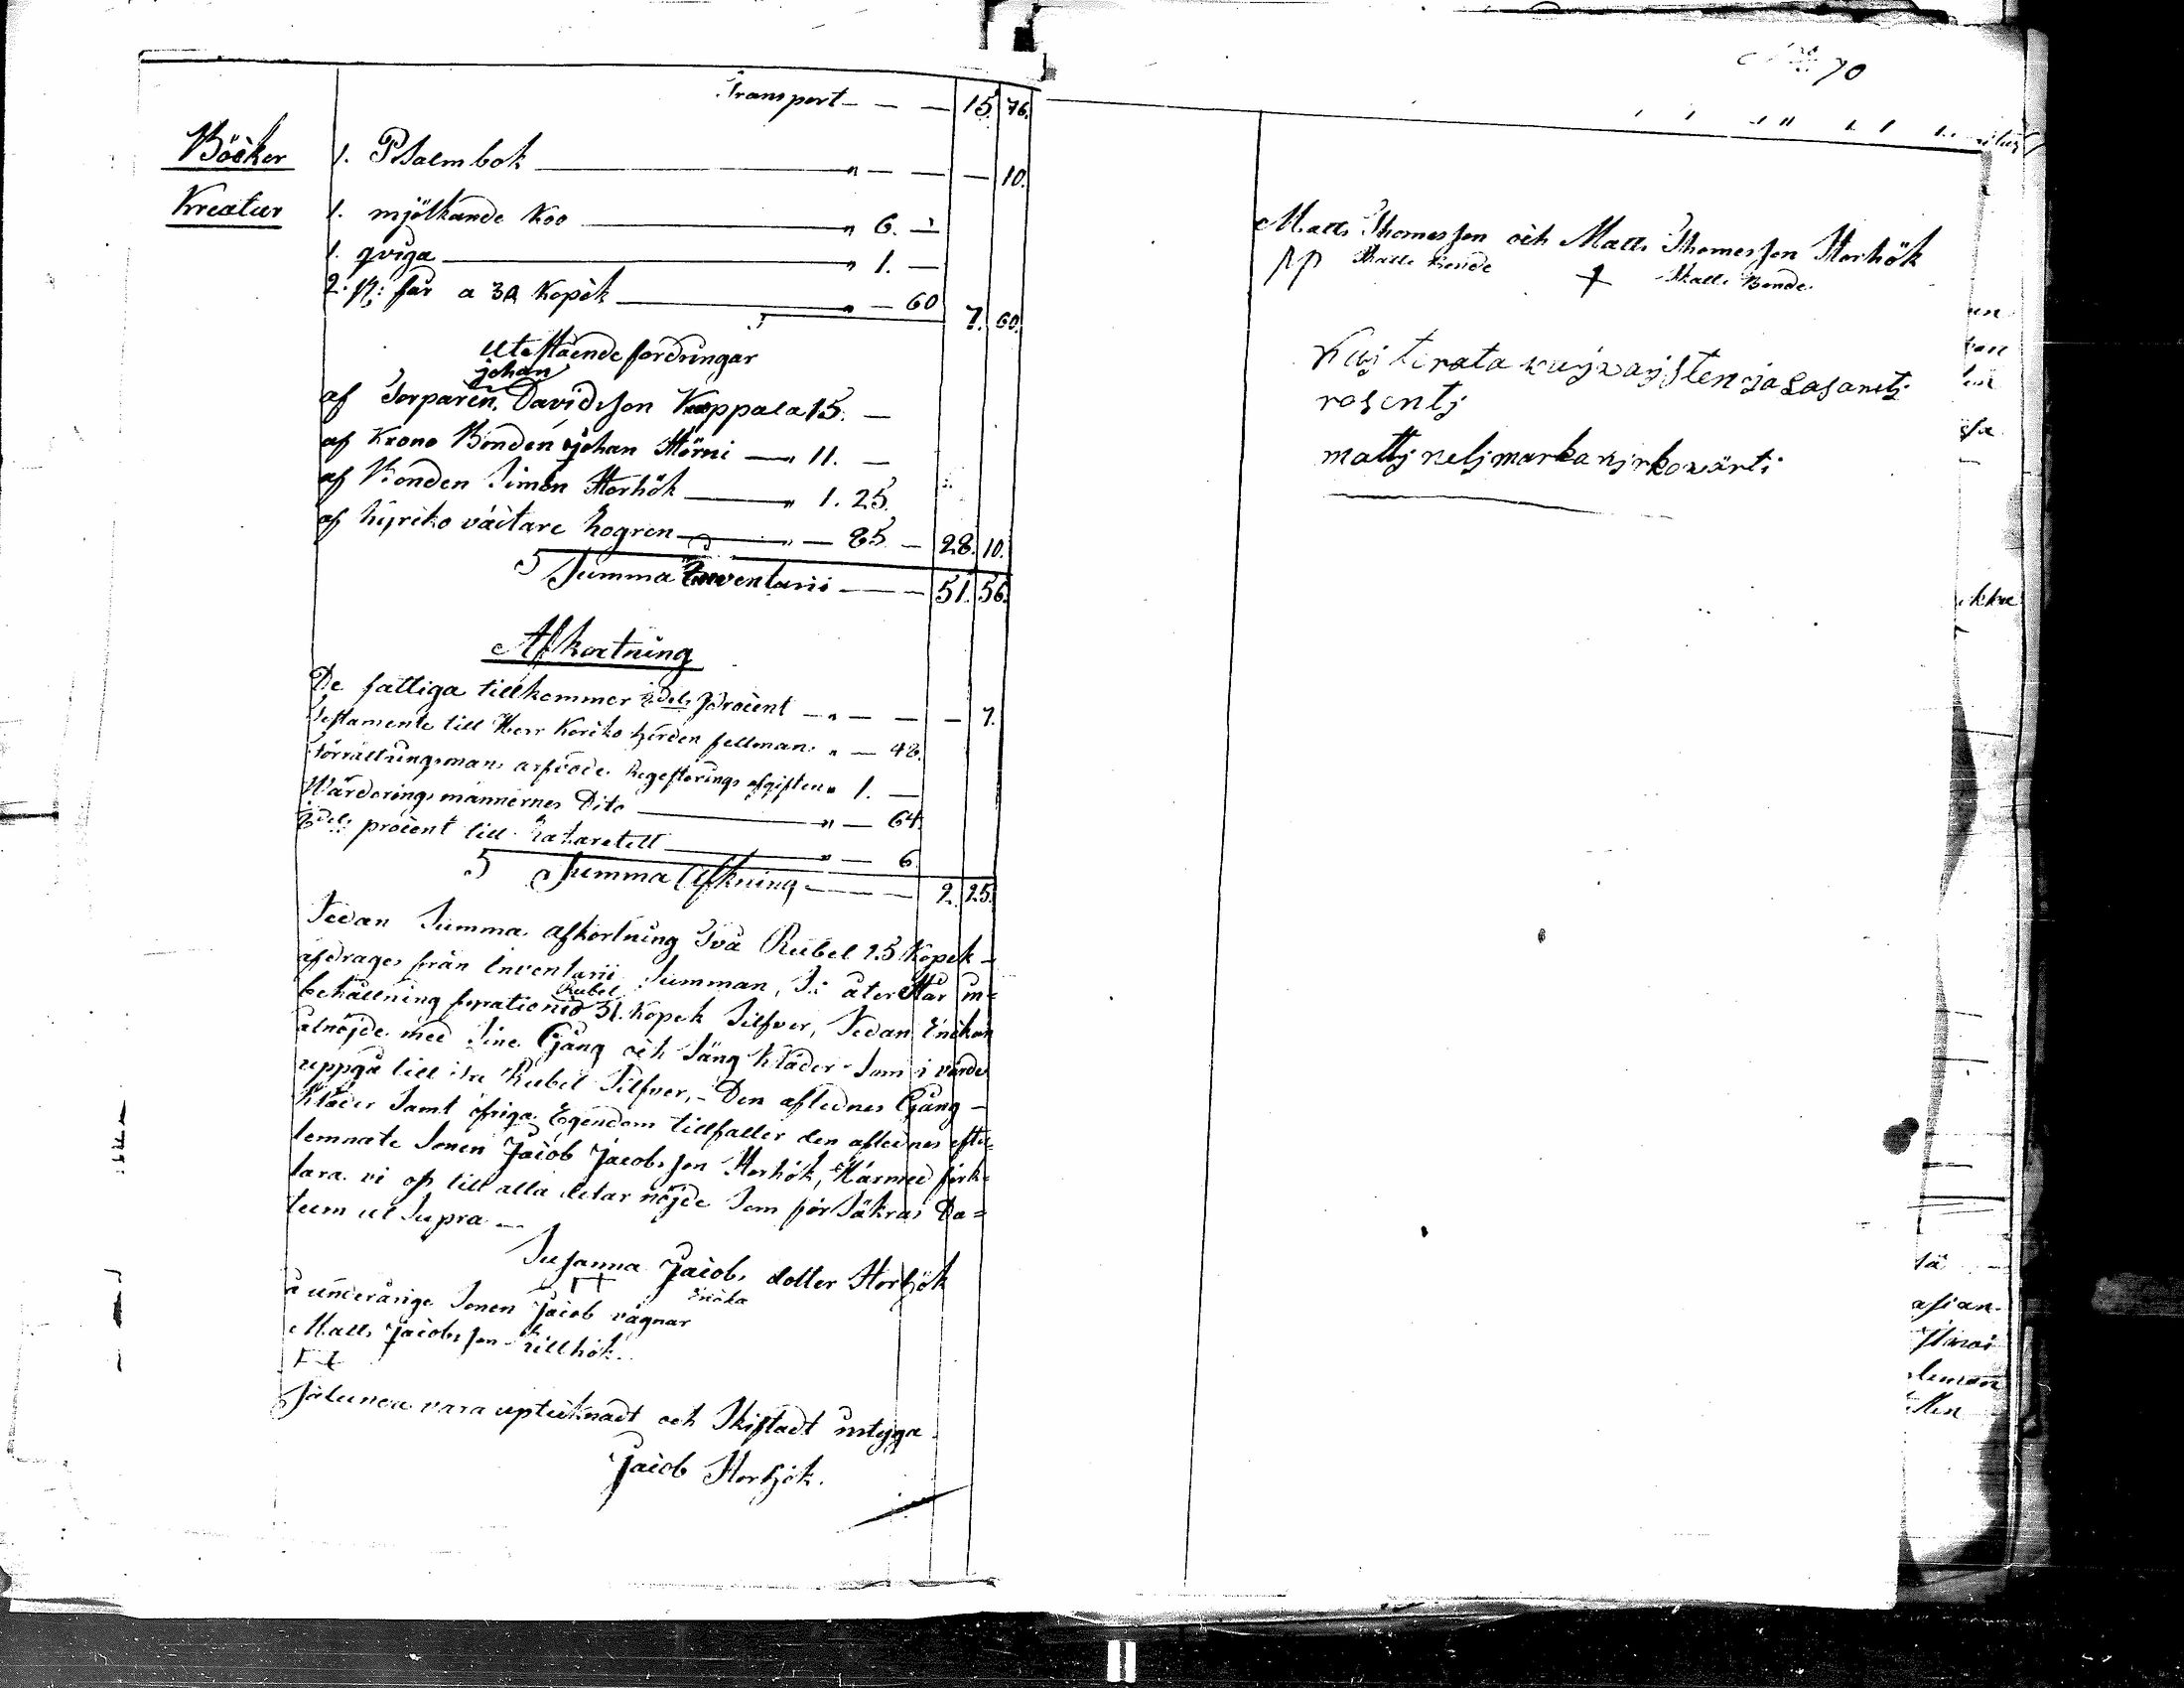 Transport — — — 15. 76.
Böcker 1. Psalmbok — " — — — 10.
Kreatur 1. mjölkande Koo — " 6. —
1. qviga — " 1. —
2. st: får a 30 Kopek — " — 60 7. 60.
Utestående fordringar
johan
af Torparen, Davidsson Koppala 15. —
af Krono Bonden johan Störni — " 11. —
af Bonden Simon Storhök — " 1. 25.
af kyrko väcktare Hogren — " — 85 — 28. 10.
Summa Inventarii — — — 51. 56.
Afkortning
De fattiga tillkommer procent — " — — — 7.
Testamente till Herr Kyrko herden fellman " — 48.
förrättningsmans arfvode Regestrings afgiften " 1. —
Wärderings männernes Dito — " — 64.
procent till — " — 6.
Summa Afkning — — — 2. 25.
Sedan Summa afkortning Två Rubel 25 Kopek
afdrages från Inventarii Summan, Så återstår in=
Rubel
behållning 31. Kopek Silfver, Sedan Enckan
atnöjde med Sine Gång och Säng kläder Som i värde
uppgå till Rubel Silfver, – Den aflednes Gång –
kläder Samt öfriga Egendom tillfaller den aflednes efter
lemnate Sonen Jacob Jacobsson Storhök, Härmed förk=
lara vi oss till alla delar nöjde Som försäkras Da=
tum ut Supra —
Susanna Jacobs dotter Storhök
Encka
å underårige Sonen Jacob vägnar
Matts Jacobsson Lillhök.
Sålunda vara uptecknadt och Skiftadt intyga
Jacob Storhök.
70
Matts Thomasson och Matts Thomesson Storhök
Skatte Bonde Skatte Bonde
rosentj
mattj neljmarka kirkowärti